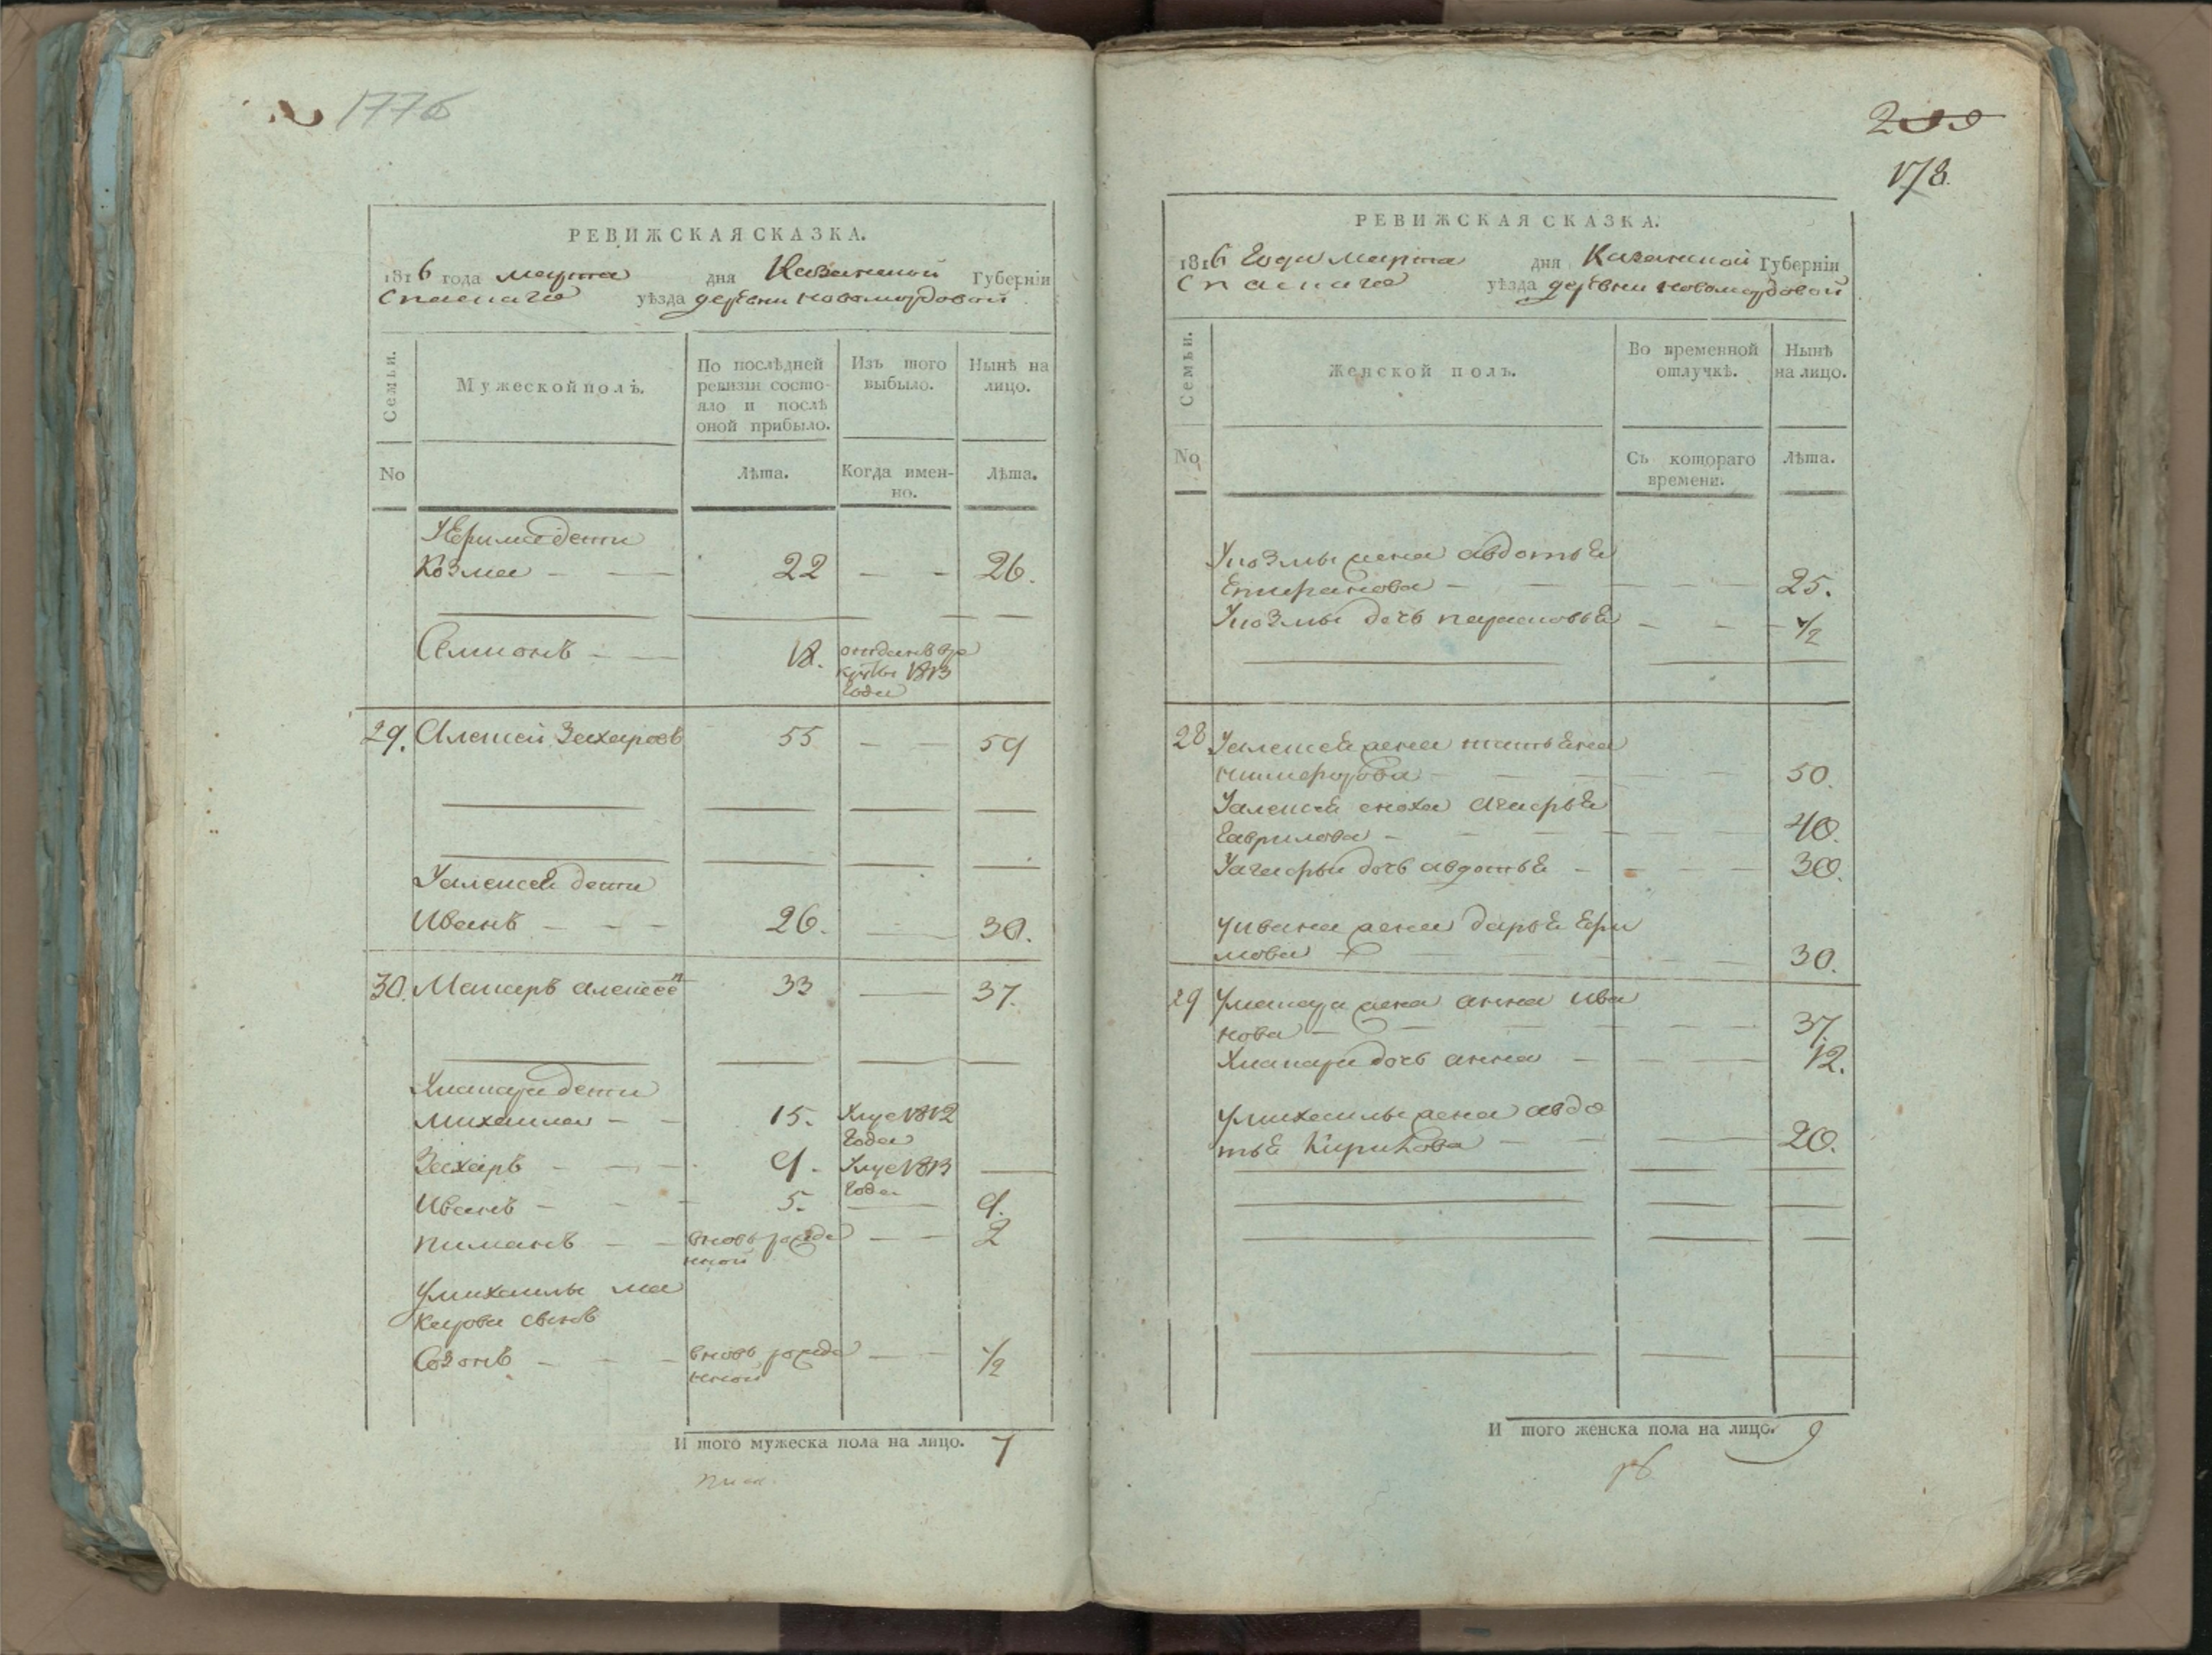 1776
РЕВИЖСКАЯ СКАЗКА.
1816 года марта дня Казанской Губерніи
Спаскаго уѣзда деревни новомордовой
Семьи.
Мужеской полъ.
По послѣдней ревизіи состояло и послѣ оной прибыло.
Изъ того выбыло.
Нынѣ на лицо.
No
Лѣта.
Когда именно.
Лѣта.
У Ефима дети
Козма 22 26.
Семионъ 18. отданъ в рекруты 1813 года
29. Алексей Захаровъ 55 59
У алексея дети
Иванъ 26. 30.
30. Макаръ алексеевъ 33 37.
У макара дети
михаила 15. Умре 1812 года
Захаръ 9. Умре 1813 года
Иванъ 5. 9.
пиманъ вновь рожденной 2
У михаилы макарова сынъ
Созонъ вновь рожденной 1/2
И того мужеска пола на лицо. 7
299
178.
РЕВИЖСКАЯ СКАЗКА.
1816 года марта дня Казанской Губерніи
Спаскаго уѣзда деревни новомордовой
Семьи.
Женской полъ.
Во временной отлучкѣ.
Нынѣ на лицо.
No
Съ котораго времени.
Лѣта.
У козмы жена авдотья
25.
У козмы дочь парасковья 1/2
28 У алексея жена татьяна
никифорова 50.
У алексея сноха
гаврилова 40.
дочь авдотья 30.
у ивана жена дарья ефи
мова 30.
29 У макара жена анна ива
нова 37.
У макара дочь анна 12.
У михаилы жена авдо
тья 20.
И того женска пола на лицо. 9